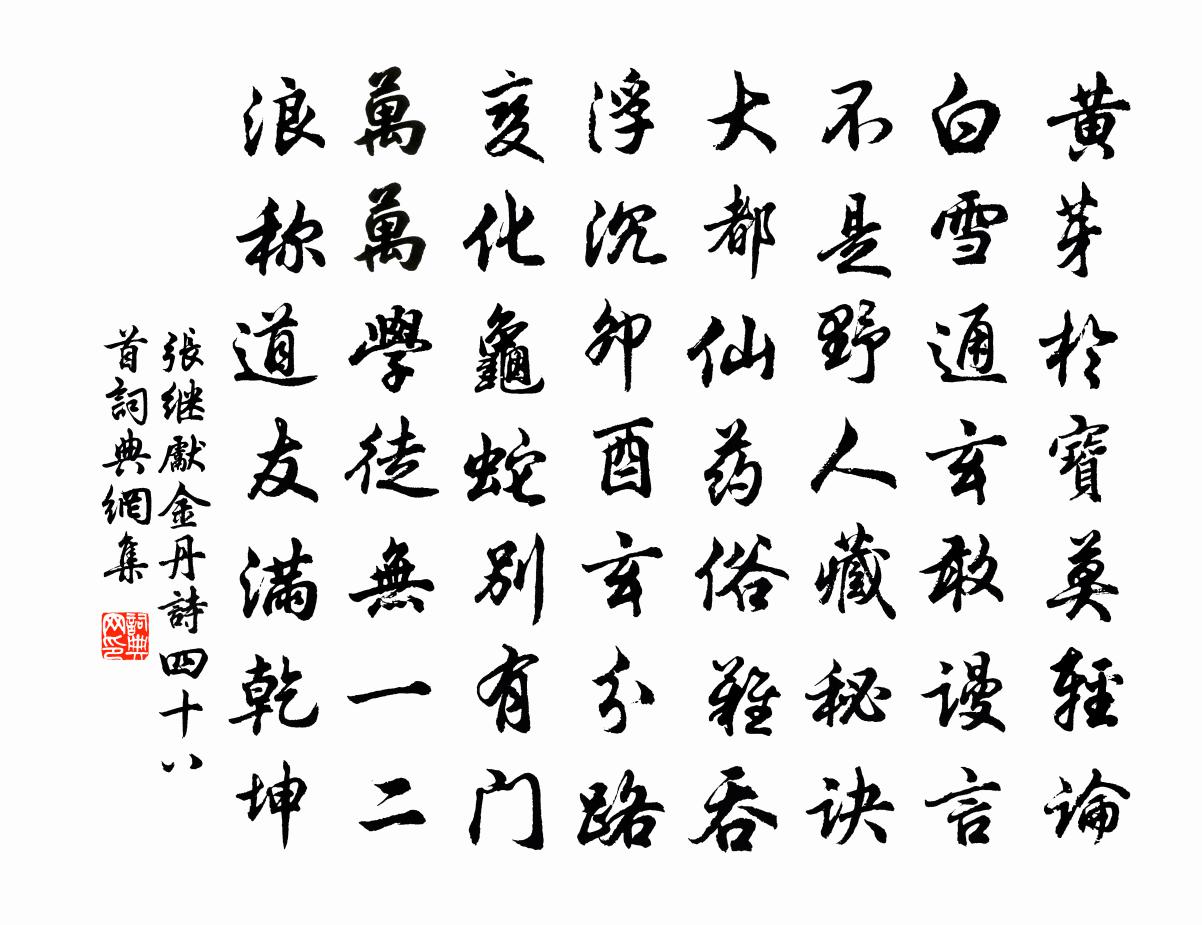 黄芽於寶莫輕論
白雪通玄敢謾言
不是野人藏秘诀
大都仙药俗難吞
浮沉卯酉玄分路
变化龜蛇别有门
萬萬學徒無一二
浪称道友满乾坤
張继獻金丹詩四十八
首詞典網集
詞典网印